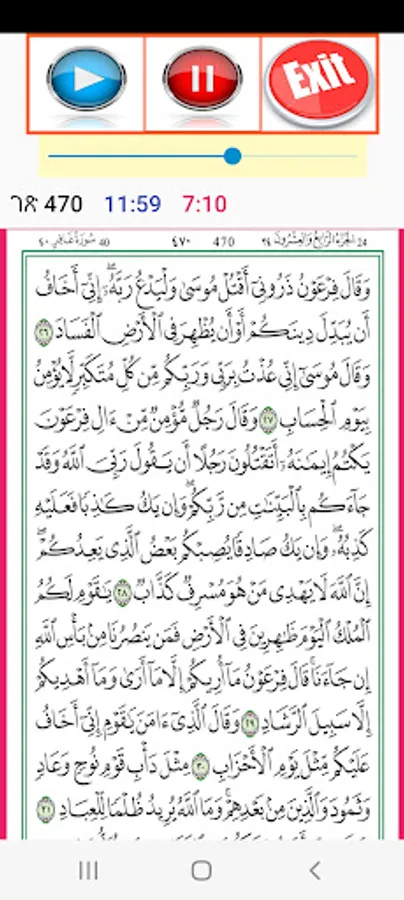 Exit
ገጽ 470 11:59 7:10
24 الجزء الرابع والعشرون ٢٤ 470 ٤٧٠ 40 سورة غافر ٤٠
وَقَالَ فِرْعَوْنُ ذَرُونِىٓ أَقْتُلْ مُوسَىٰ وَلْيَدْعُ رَبَّهُۥٓ ۖ إِنِّىٓ أَخَافُ
أَن يُبَدِّلَ دِينَكُمْ أَوْ أَن يُظْهِرَ فِى ٱلْأَرْضِ ٱلْفَسَادَ ٢٦
وَقَالَ مُوسَىٰٓ إِنِّى عُذْتُ بِرَبِّى وَرَبِّكُم مِّن كُلِّ مُتَكَبِّرٍ لَّا يُؤْمِنُ
بِيَوْمِ ٱلْحِسَابِ ٢٧ وَقَالَ رَجُلٌ مُّؤْمِنٌ مِّنْ ءَالِ فِرْعَوْنَ
يَكْتُمُ إِيمَٰنَهُۥٓ أَتَقْتُلُونَ رَجُلًا أَن يَقُولَ رَبِّىَ ٱللَّهُ وَقَدْ
جَآءَكُم بِٱلْبَيِّنَٰتِ مِن رَّبِّكُمْ ۖ وَإِن يَكُ كَٰذِبًا فَعَلَيْهِ
كَذِبُهُۥ ۖ وَإِن يَكُ صَادِقًا يُصِبْكُم بَعْضُ ٱلَّذِى يَعِدُكُمْ ۖ
إِنَّ ٱللَّهَ لَا يَهْدِى مَنْ هُوَ مُسْرِفٌ كَذَّابٌ ٢٨ يَٰقَوْمِ لَكُمُ
ٱلْمُلْكُ ٱلْيَوْمَ ظَٰهِرِينَ فِى ٱلْأَرْضِ فَمَن يَنصُرُنَا مِنۢ بَأْسِ ٱللَّهِ
إِن جَآءَنَا ۚ قَالَ فِرْعَوْنُ مَآ أُرِيكُمْ إِلَّا مَآ أَرَىٰ وَمَآ أَهْدِيكُمْ
إِلَّا سَبِيلَ ٱلرَّشَادِ ٢٩ وَقَالَ ٱلَّذِىٓ ءَامَنَ يَٰقَوْمِ إِنِّىٓ أَخَافُ
عَلَيْكُم مِّثْلَ يَوْمِ ٱلْأَحْزَابِ ٣٠ مِثْلَ دَأْبِ قَوْمِ نُوحٍ وَعَادٍ
وَثَمُودَ وَٱلَّذِينَ مِنۢ بَعْدِهِمْ ۚ وَمَا ٱللَّهُ يُرِيدُ ظُلْمًا لِّلْعِبَادِ ٣١